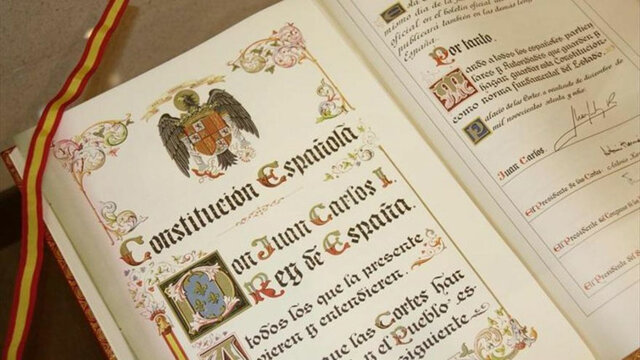 Constitución Española
Don Juan Carlos I,
Rey de España,
A todos los que la presente
vieren y entendieren,
que las Cortes han
y el Pueblo es-
siguiente
mismo día de la
oficial en el boletín oficial del
publicará también en las demás len
España.
Por tanto,
Mando a todos los españoles, particu
lares y Autoridades que guarden y
hagan guardar esta Constitución
como norma fundamental del Estado.
Palacio de las Cortes, a veintisiete de diciembre de
mil novecientos setenta y ocho.
Juan Carlos
El Presidente de las Cortes,
El Presidente del Congreso de los
El Presidente del